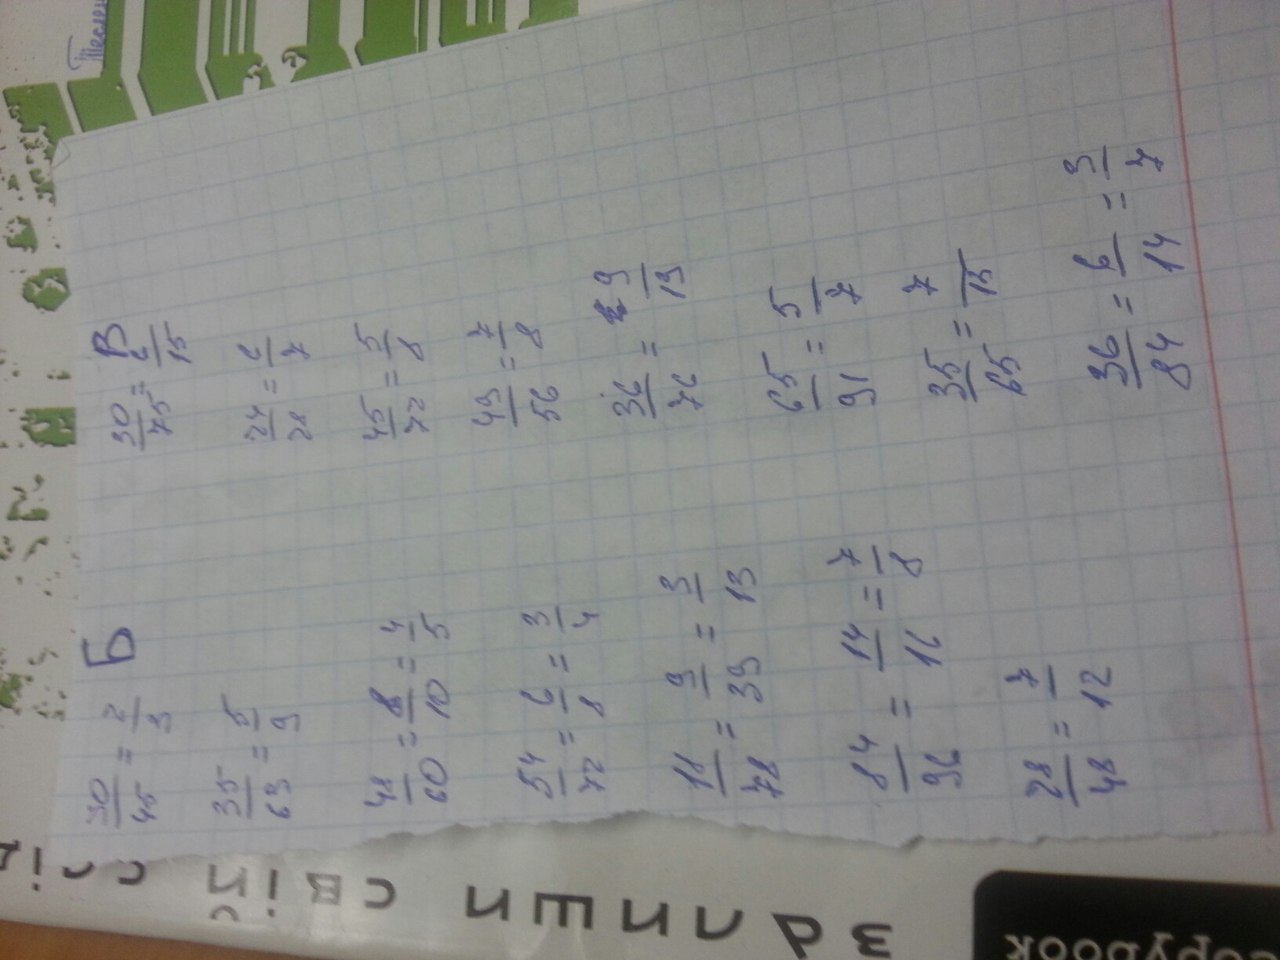 Б
30/45 = 2/3
35/63 = 5/9
48/60 = 8/10 = 4/5
54/72 = 6/8 = 3/4
18/78 = 9/39 = 3/13
84/96 = 14/16 = 7/8
28/48 = 7/12
В
30/75 = 6/15
24/28 = 6/7
45/72 = 5/8
49/56 = 7/8
36/76 = 9/19
65/91 = 5/7
35/65 = 7/13
36/84 = 6/14 = 3/7
залиши свій слід
copybook